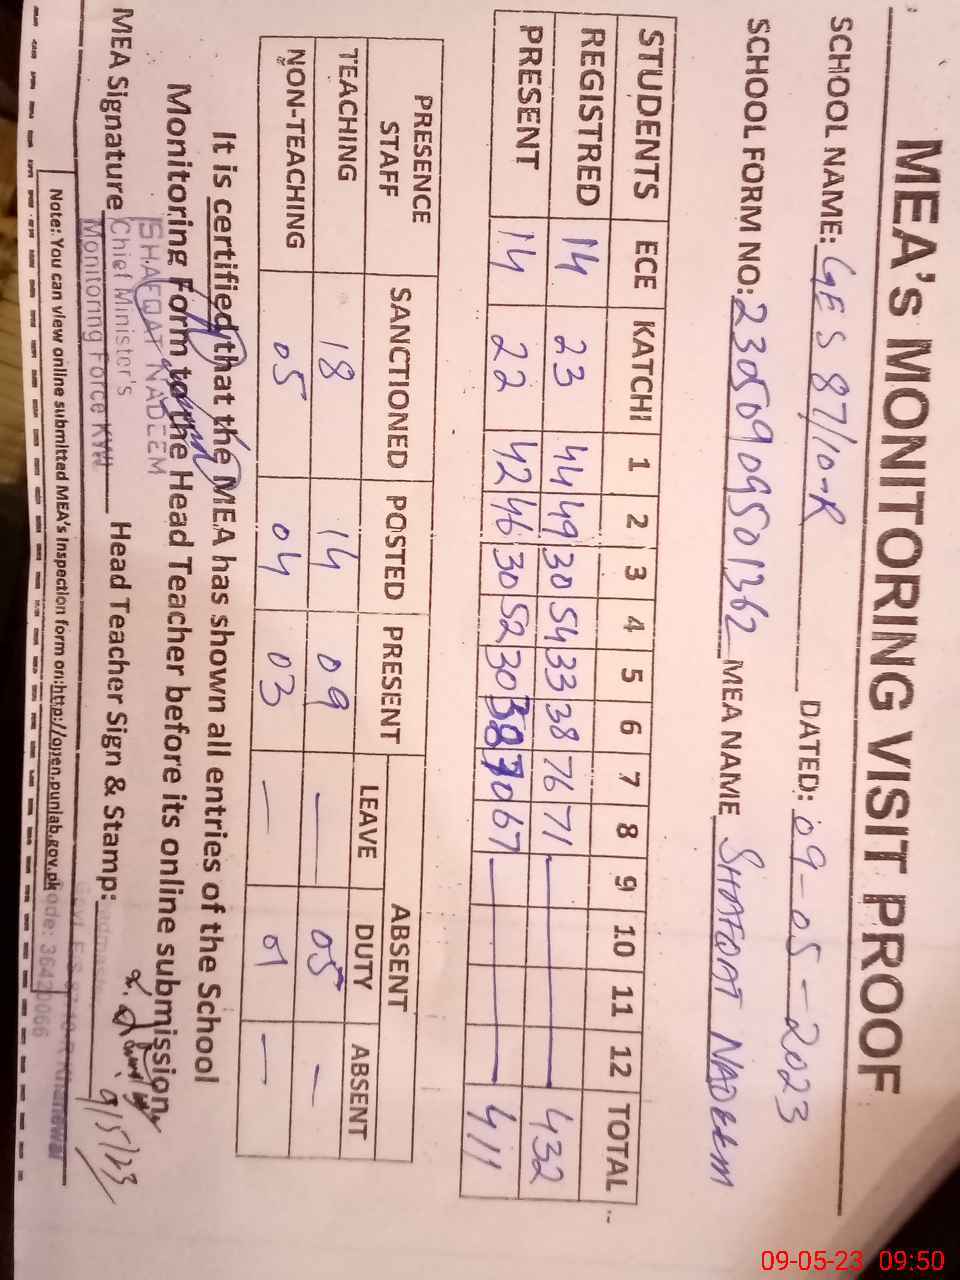 MEA's MONITORING VISIT PROOF
SCHOOL NAME: GES 87/10-R DATED: 09-05-2023
SCHOOL FORM NO: 23050909501362 MEA NAME SHAFQAT NADEEM
STUDENTS ECE KATCHI 1 2 3 4 5 6 7 8 9 10 11 12 TOTAL
REGISTRED 14 23 44 49 30 54 33 38 76 71 432
PRESENT 14 22 42 46 30 52 30 38 70 67 411
PRESENCE STAFF SANCTIONED POSTED PRESENT ABSENT
LEAVE DUTY ABSENT
TEACHING 18 14 09 — 05 —
NON-TEACHING 05 04 03 — 01 —
It is certified that the MEA has shown all entries of the School
Monitoring Form to the Head Teacher before its online submission.
MEA Signature Head Teacher Sign & Stamp:
SHAFQAT NADEEM
Chief Minister's
Monitoring Force KYW
9/5/23
Khanewal
ode: 36420066
Note: You can view online submitted MEA's Inspection form on:http://open.punjab.gov.pk
09-05-23 09:50